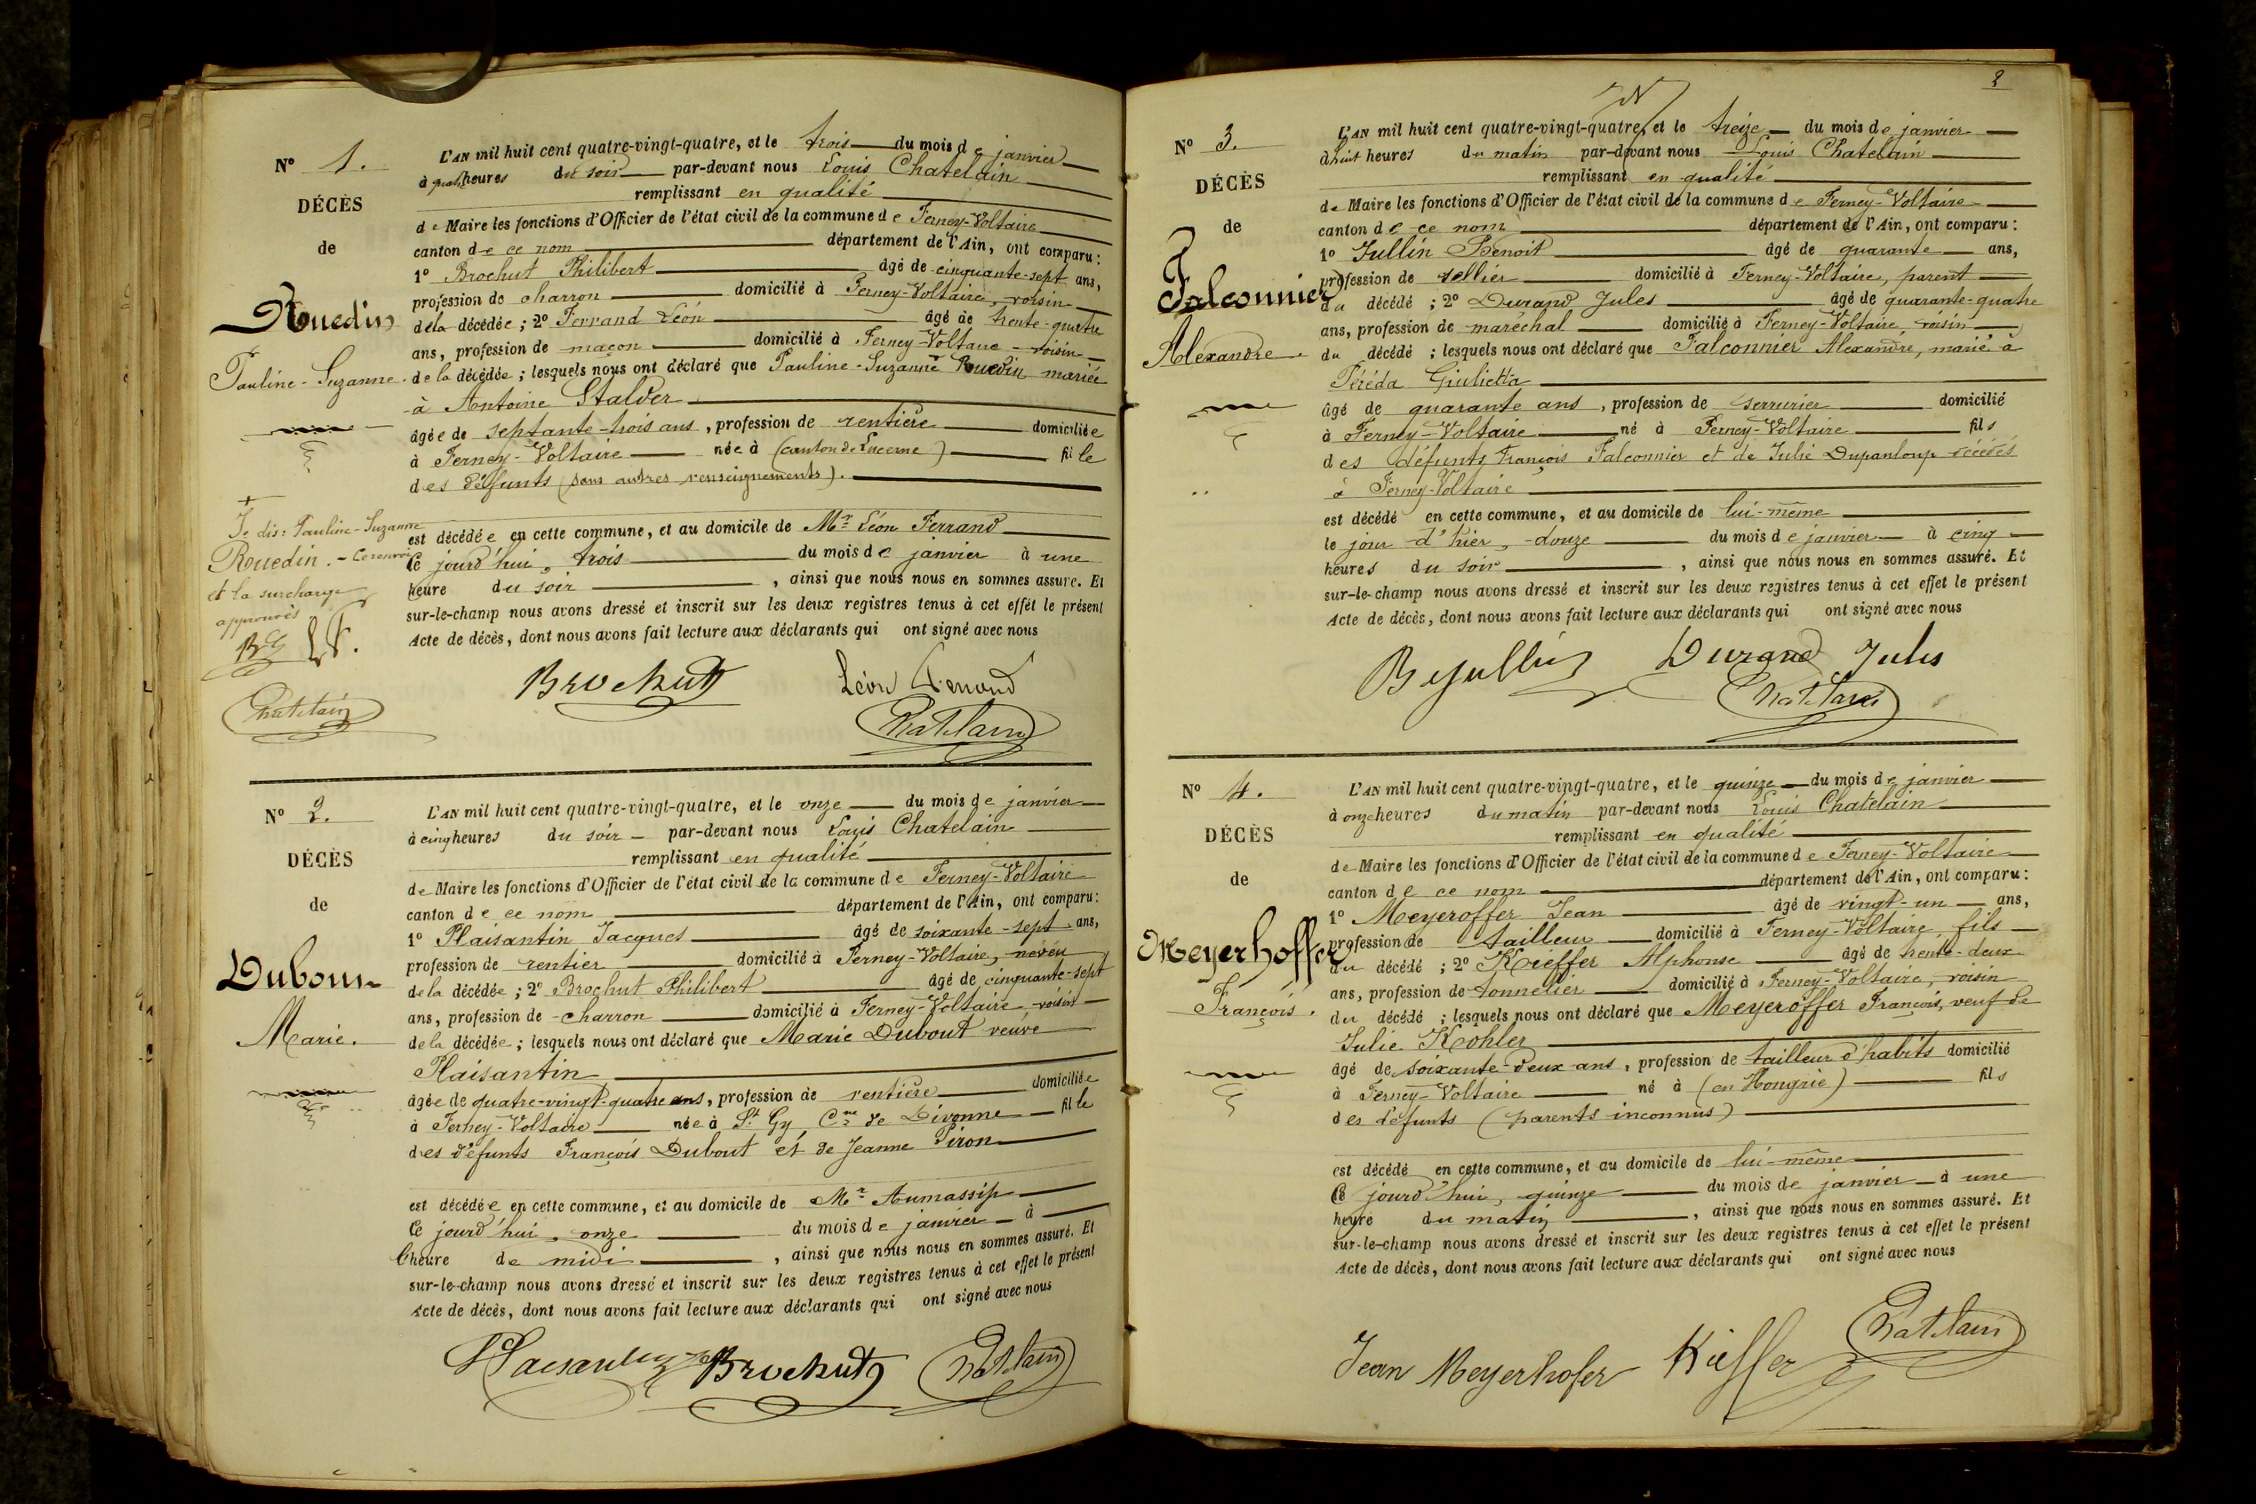 N° 1.
DÉCÈS
de
Ruedin
Pauline-Suzanne.
L'AN mil huit cent quatre-vingt-quatre, et le trois du mois de janvier
à quatre heures du soir par-devant nous Louis Chatelain
remplissant en qualité
de Maire les fonctions d'Officier de l'état civil de la commune de Ferney-Voltaire
canton de ce nom département de l'Ain, ont comparu:
1° Brochut Philibert âgé de cinquante-sept ans,
profession de charron domicilié à Ferney-Voltaire, voisin
de la décédée; 2° Ferrand Léon âgé de trente-quatre
ans, profession de maçon domicilié à Ferney-Voltaire - voisin
de la décédée; lesquels nous ont déclaré que Pauline-Suzanne Ruedin mariée
à Antoine Stalder
âgée de septante-trois ans, profession de rentière domiciliée
à Ferney-Voltaire née à (canton de Lucerne) fille
des défunts (sans autres renseignements).
est décédée en cette commune, et au domicile de Mr Léon Ferrand
Ce jourd'hui, trois du mois de janvier à une
heure du soir, ainsi que nous nous en sommes assuré. Et
sur-le-champ nous avons dressé et inscrit sur les deux registres tenus à cet effet le présent
Acte de décès, dont nous avons fait lecture aux déclarants qui ont signé avec nous
Je dis: Pauline-Suzanne
Rouedin. - Ce renvoi
et la surcharge
approuvés
Chatelain
Brochut Léon Ferrand
Chatelain
N° 2.
DÉCÈS
de
Dubout
Marie.
L'AN mil huit cent quatre-vingt-quatre, et le onze du mois de janvier
à cinq heures du soir par-devant nous Louis Chatelain
remplissant en qualité
de Maire les fonctions d'Officier de l'état civil de la commune de Ferney-Voltaire
canton de ce nom département de l'Ain, ont comparu:
1° Plaisantin Jacques âgé de soixante-sept ans,
profession de rentier domicilié à Ferney-Voltaire, neveu
de la décédée; 2° Brochut Philibert âgé de cinquante-sept
ans, profession de charron domicilié à Ferney-Voltaire voisin
de la décédée; lesquels nous ont déclaré que Marie Dubout veuve
Plaisantin
âgée de quatre-vingt-quatre ans, profession de rentière domiciliée
à Ferney-Voltaire née à St Gy Cne de Divonne fille
des défunts François Dubout et de Jeanne Piron
est décédée en cette commune, et au domicile de Mr Aumassip
Ce jourd'hui, onze du mois de janvier à
l'heure de midi, ainsi que nous nous en sommes assuré. Et
sur-le-champ nous avons dressé et inscrit sur les deux registres tenus à cet effet le présent
Acte de décès, dont nous avons fait lecture aux déclarants qui ont signé avec nous
Plaisantin Brochut Chatelain
2
N° 3.
DÉCÈS
de
Falconnier
Alexandre.
L'AN mil huit cent quatre-vingt-quatre, et le treize du mois de janvier
à huit heures du matin par-devant nous Louis Chatelain
remplissant en qualité
de Maire les fonctions d'Officier de l'état civil de la commune de Ferney-Voltaire
canton de ce nom département de l'Ain, ont comparu:
1° Jullin Benoit âgé de quarante ans,
profession de sellier domicilié à Ferney-Voltaire, parent
du décédé; 2° Durand Jules âgé de quarante-quatre
ans, profession de maréchal domicilié à Ferney-Voltaire, voisin
du décédé; lesquels nous ont déclaré que Falconnier Alexandre, marié à
Péréda Giulietta
âgé de quarante ans, profession de serrurier domicilié
à Ferney-Voltaire né à Ferney-Voltaire fils
des défunts François Falconnier et de Julie Dupanloup décédés
à Ferney-Voltaire
est décédé en cette commune, et au domicile de lui-même
le jour d'hier, douze du mois de janvier à cinq
heures du soir, ainsi que nous nous en sommes assuré. Et
sur-le-champ nous avons dressé et inscrit sur les deux registres tenus à cet effet le présent
Acte de décès, dont nous avons fait lecture aux déclarants qui ont signé avec nous
B Jullin Durand Jules
Chatelain
N° 4.
DÉCÈS
de
Meyerhoffer
François.
L'AN mil huit cent quatre-vingt-quatre, et le quinze du mois de janvier
à onze heures du matin par-devant nous Louis Chatelain
remplissant en qualité
de Maire les fonctions d'Officier de l'état civil de la commune de Ferney-Voltaire
canton de ce nom département de l'Ain, ont comparu:
1° Meyeroffer Jean âgé de vingt-un ans,
profession de tailleur domicilié à Ferney-Voltaire, fils
du décédé; 2° Kieffer Alphonse âgé de trente-deux
ans, profession de tonnelier domicilié à Ferney-Voltaire, voisin
du décédé; lesquels nous ont déclaré que Meyeroffer François, veuf de
Julie Kohler
âgé de soixante-deux ans, profession de tailleur d'habits domicilié
à Ferney-Voltaire né à (en Hongrie) fils
des défunts (parents inconnus)
est décédé en cette commune, et au domicile de lui-même
Ce jourd'hui, quinze du mois de janvier à une
heure du matin, ainsi que nous nous en sommes assuré. Et
sur-le-champ nous avons dressé et inscrit sur les deux registres tenus à cet effet le présent
Acte de décès, dont nous avons fait lecture aux déclarants qui ont signé avec nous
Jean Meyerhofer Kieffer Chatelain